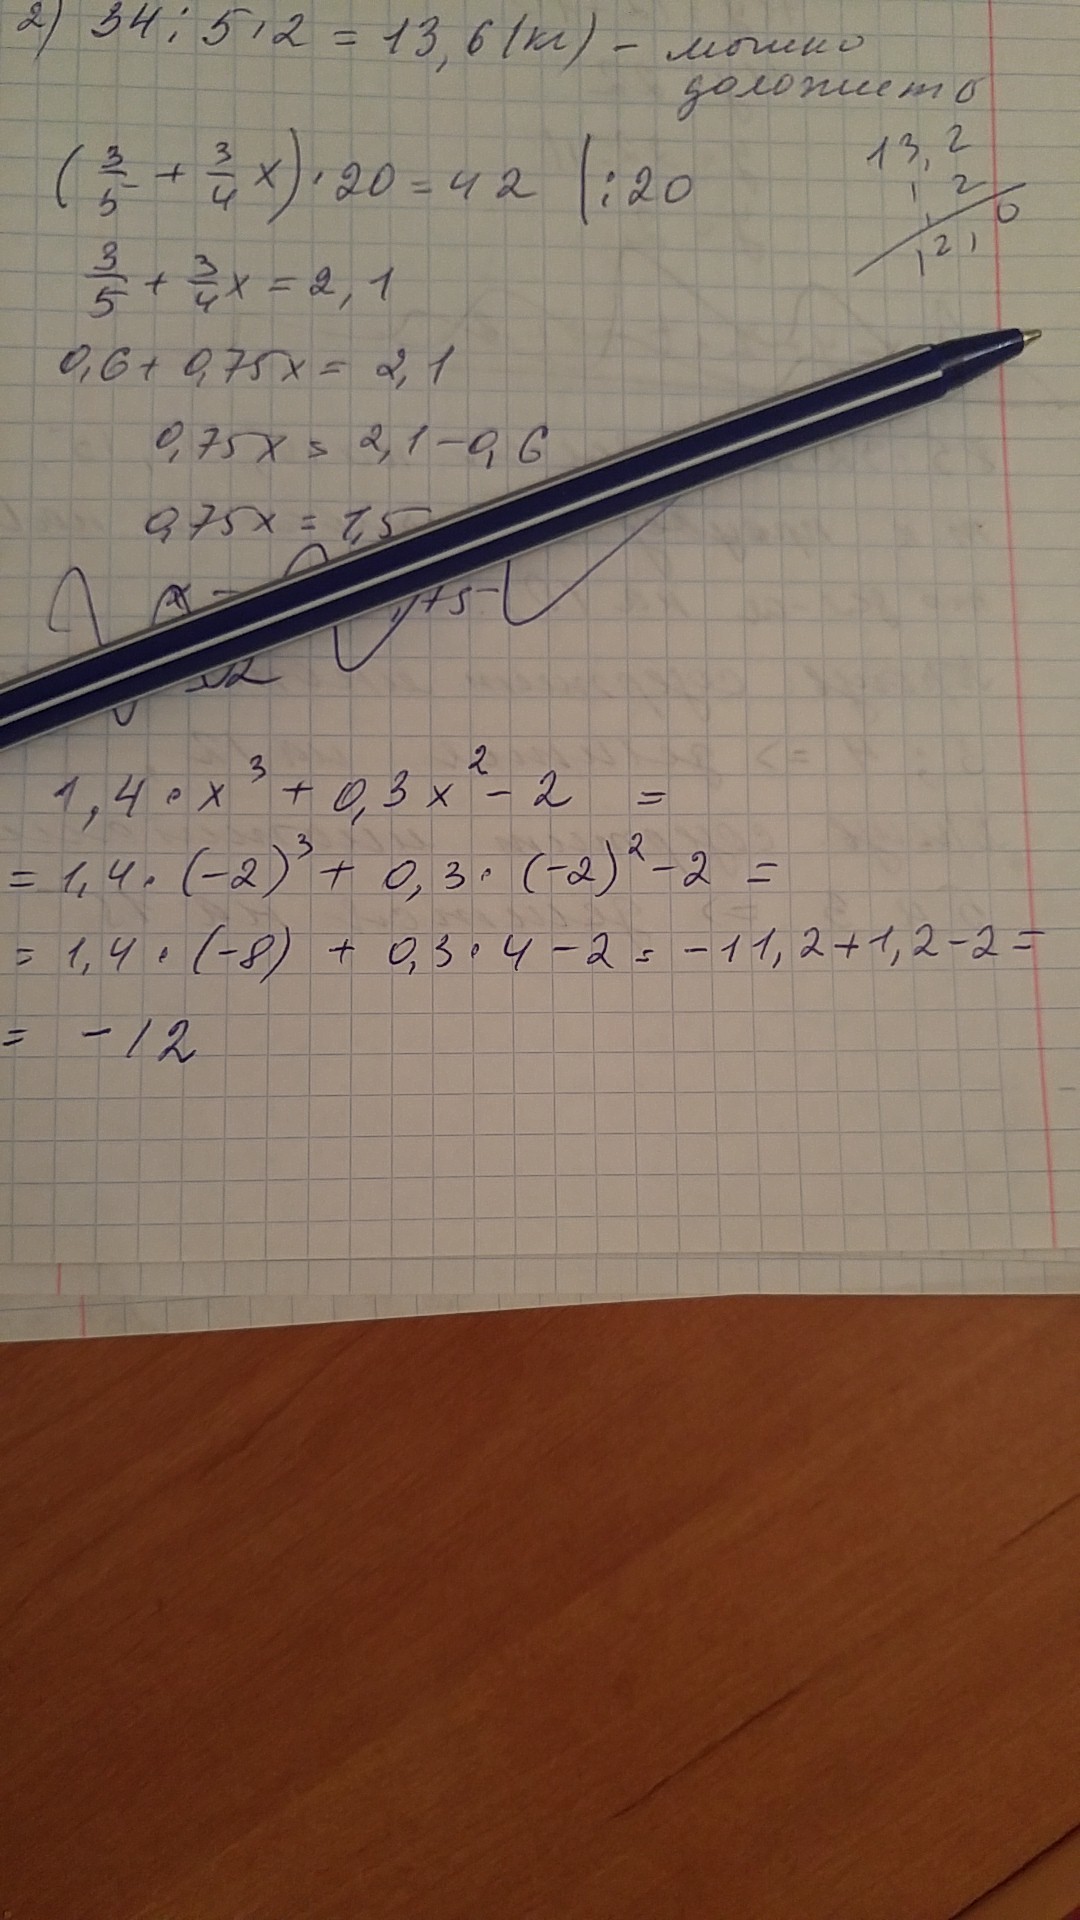 2) 34 : 5 · 2 = 13,6 (кг) – можно
доложить
(3/5 + 3/4 x) · 20 = 42 | : 20
13,2
1,2
12,0
3/5 + 3/4 x = 2,1
0,6 + 0,75x = 2,1
0,75x = 2,1 – 0,6
0,75x = 1,5
1,4 · x³ + 0,3x² – 2 =
= 1,4 · (-2)³ + 0,3 · (-2)² – 2 =
= 1,4 · (-8) + 0,3 · 4 – 2 = -11,2 + 1,2 – 2 =
= -12